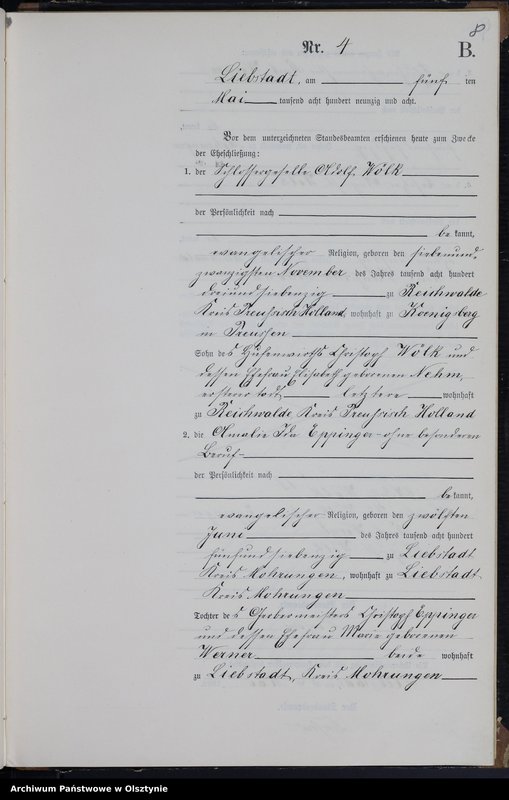 8
Nr. 4
B.
Liebstadt, am fünf ten
Mai tausend acht hundert neunzig und acht.
Vor dem unterzeichneten Standesbeamten erschienen heute zum Zwecke
der Eheschließung:
1. der Schlossergeselle Adolf Wölk
der Persönlichkeit nach
be kannt,
evangelischer Religion, geboren den siebenund-
zwanzigsten November des Jahres tausend acht hundert
dreiundsiebenzig zu Reichwalde
Kreis Preußisch Holland, wohnhaft zu Koenigsberg
in Preussen
Sohn des Hufenwirths Christoph Wölk und
dessen Ehefrau Elisabeth geborenen Nehm,
ersterer todt, letztere wohnhaft
zu Reichwalde, Kreis Preußisch Holland
2. die Amalie Ida Eppinger - ohne besonderen
Beruf -
der Persönlichkeit nach
be kannt,
evangelischer Religion, geboren den zwölften
Juni des Jahres tausend acht hundert
fünfundsiebenzig zu Liebstadt
Kreis Mohrungen, wohnhaft zu Liebstadt
Kreis Mohrungen
Tochter des Gerbermeisters Christoph Eppinger
und dessen Ehefrau Marie geborenen
Werner beide wohnhaft
zu Liebstadt, Kreis Mohrungen
Archiwum Państwowe w Olsztynie